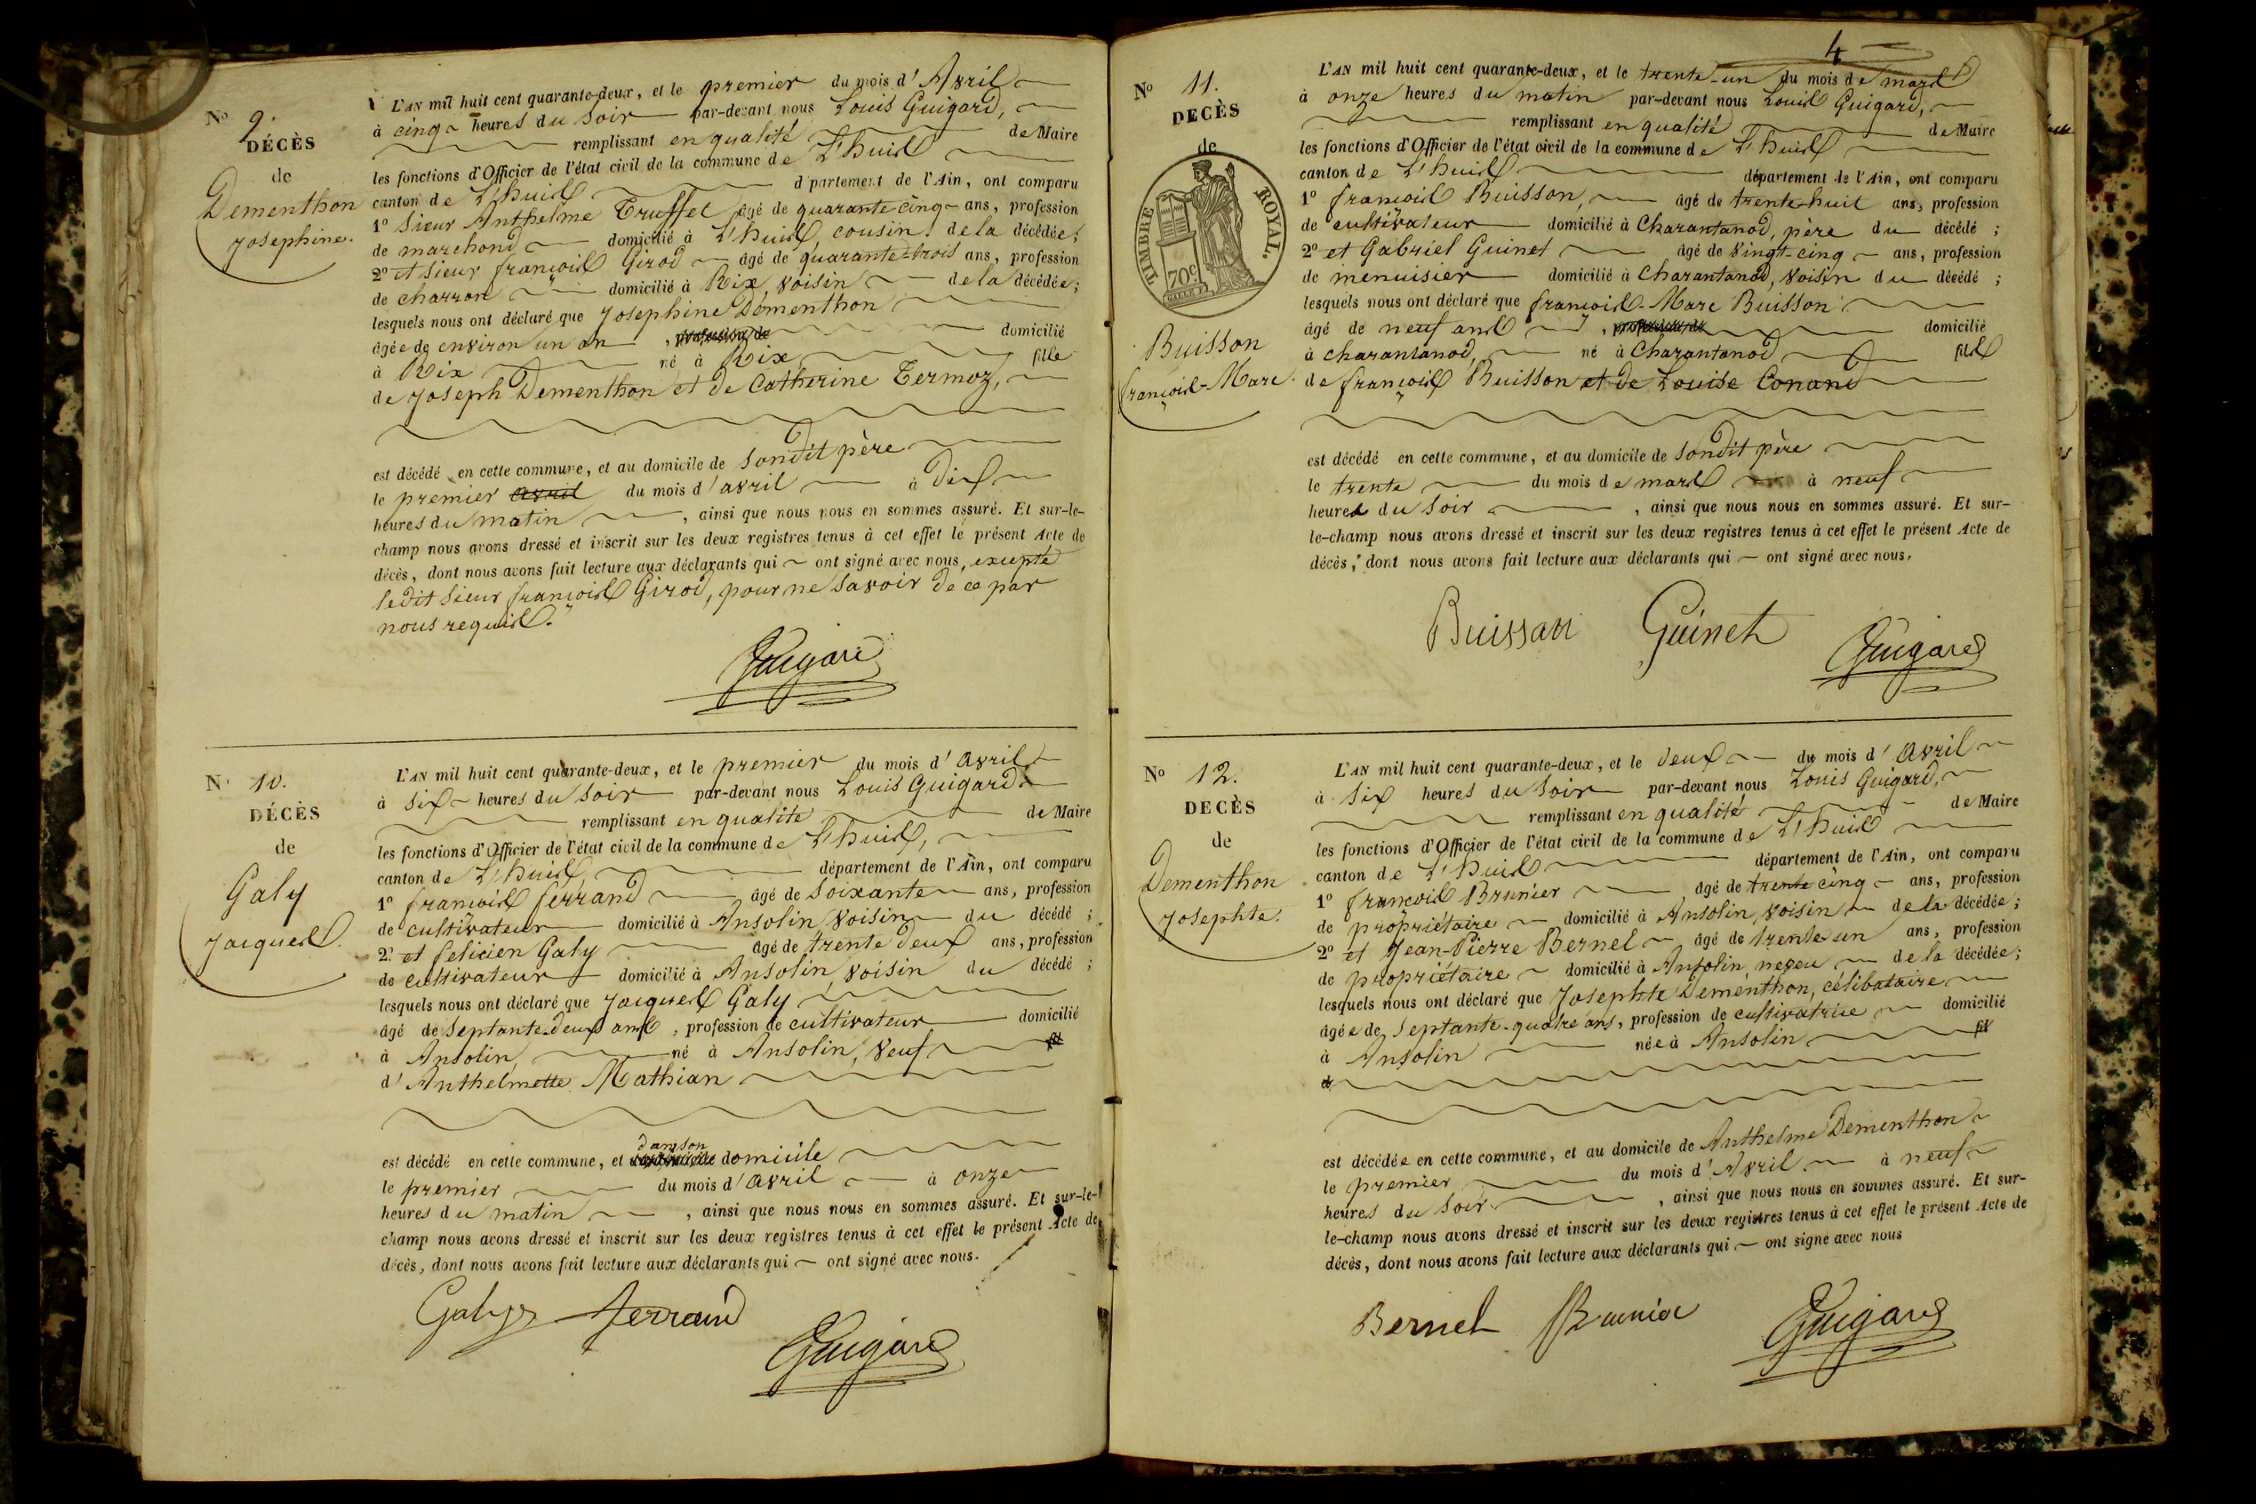 No 9.
DÉCÈS
de
Dementhon
Josephine.
L'AN mil huit cent quarante-deux, et le premier du mois d'Avril
à cinq heures du soir par-devant nous Louis Guigard,
remplissant en qualité de Maire
les fonctions d'Officier de l'état civil de la commune de L'huis
canton de L'huis département de l'Ain, ont comparu
1o Sieur Anthelme Truffet âgé de quarante cinq ans, profession
de marchand domicilié à L'huis, cousin de la décédée;
2o et sieur françois Girod âgé de quarante-trois ans, profession
de charron domicilié à Rix, voisin de la décédée;
lesquels nous ont déclaré que Josephine Dementhon
âgée de environ un an, profession de domicilié
à Rix né à Rix fille
de Joseph Dementhon et de Catherine Termoz,
est décédé en cette commune, et au domicile de sondit père
le premier avril du mois d'avril à dix
heures du matin, ainsi que nous nous en sommes assuré. Et sur-le-
champ nous avons dressé et inscrit sur les deux registres tenus à cet effet le présent Acte de
décès, dont nous avons fait lecture aux déclarants qui ont signé avec nous, excepté
ledit sieur françois Girod, pour ne savoir de ce par
nous requis.
Guigard
No 10.
DÉCÈS
de
Galy
Jacques.
L'AN mil huit cent quarante-deux, et le premier du mois d'avril
à six heures du soir par-devant nous Louis Guigard
remplissant en qualité de Maire
les fonctions d'Officier de l'état civil de la commune de L'huis,
canton de L'huis, département de l'Ain, ont comparu
1o françois ferrand âgé de soixante ans, profession
de cultivateur domicilié à Ansolin voisin du décédé;
2o et felicien Galy âgé de trente deux ans, profession
de cultivateur domicilié à Ansolin, voisin du décédé;
lesquels nous ont déclaré que Jacques Galy
âgé de septante-deux ans, profession de cultivateur domicilié
à Ansolin, né à Ansolin, veuf fil
d'Anthelmette Mathian
dans son
est décédé en cette commune, et au domicile de domicile
le premier du mois d'avril à onze
heures du matin, ainsi que nous nous en sommes assuré. Et sur-le-
champ nous avons dressé et inscrit sur les deux registres tenus à cet effet le présent Acte de
décès, dont nous avons fait lecture aux déclarants qui ont signé avec nous.
Galy ferrand
Guigard
4
No 11.
DECÈS
de
TIMBRE ROYAL.
70c
Buisson
françois-Marc.
L'AN mil huit cent quarante-deux, et le trente-un du mois de mars
à onze heures du matin par-devant nous Louis Guigard,
remplissant en qualité de Maire
les fonctions d'Officier de l'état civil de la commune de L'huis
canton de L'huis département de l'Ain, ont comparu
1o françois Buisson, âgé de trente-huit ans, profession
de cultivateur domicilié à Charantanod, père du décédé;
2o et Gabriel Guinet âgé de vingt-cinq ans, profession
de menuisier domicilié à Charantanod, voisin du décédé;
lesquels nous ont déclaré que françois-Marc Buisson
âgé de neuf ans, profession de domicilié
à charantanod, né à Charantanod fils
de françois Buisson et de Louise Conand
est décédé en cette commune, et au domicile de sondit père
le trente du mois de mars à neuf
heures du soir, ainsi que nous nous en sommes assuré. Et sur-
le-champ nous avons dressé et inscrit sur les deux registres tenus à cet effet le présent Acte de
décès, dont nous avons fait lecture aux déclarants qui ont signé avec nous.
Buisson Guinet Guigard
No 12.
DECÈS
de
Dementhon
Josephte.
L'AN mil huit cent quarante-deux, et le deux du mois d'avril
à six heures du soir par-devant nous Louis Guigard,
remplissant en qualité de Maire
les fonctions d'Officier de l'état civil de la commune de L'huis
canton de L'huis département de l'Ain, ont comparu
1o françois Brunier âgé de trente cinq ans, profession
de propriétaire domicilié à Ansolin, voisin de la décédée;
2o et Jean-Pierre Bernel âgé de trente un ans, profession
de propriétaire domicilié à Ansolin, neveu de la décédée;
lesquels nous ont déclaré que Josephte Dementhon, célibataire
âgée de septante-quatre ans, profession de cultivatrice domicilié
à Ansolin née à Ansolin fil
de
est décédée en cette commune, et au domicile de Anthelme Dementhon
le premier du mois d'Avril à neuf
heures du soir, ainsi que nous nous en sommes assuré. Et sur-
le-champ nous avons dressé et inscrit sur les deux registres tenus à cet effet le présent Acte de
décès, dont nous avons fait lecture aux déclarants qui ont signé avec nous
Bernel Brunier Guigard